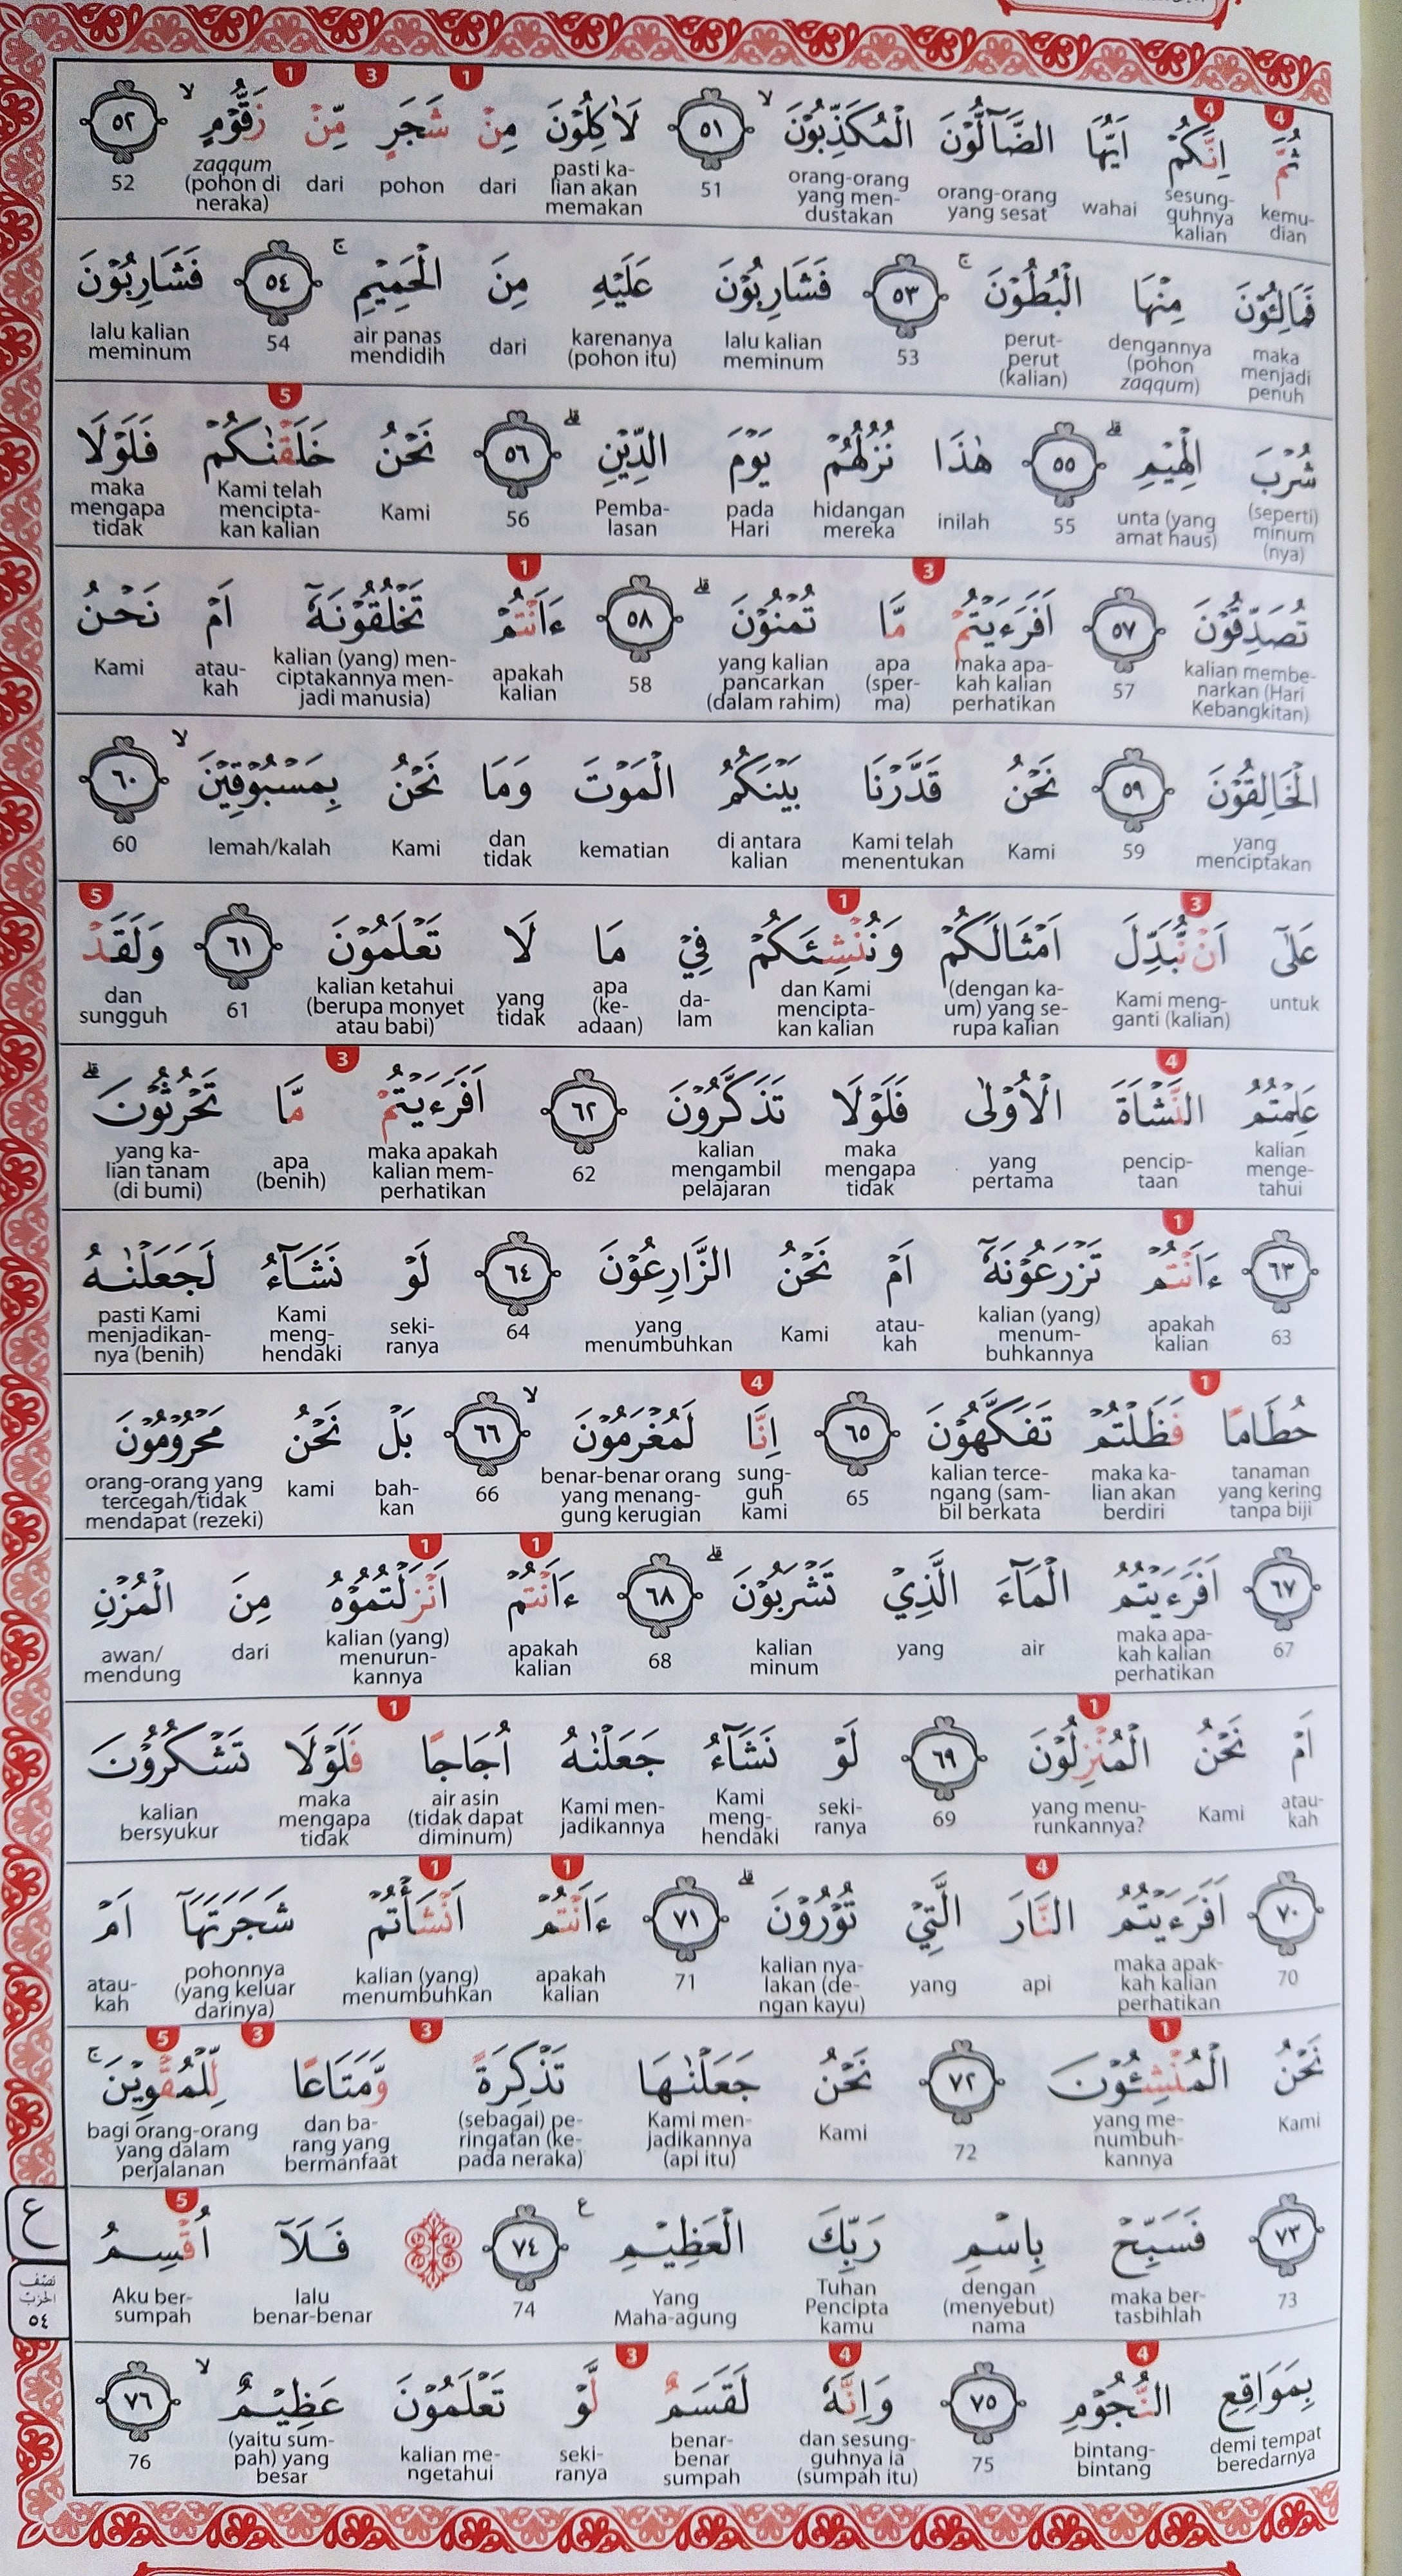 4 4 1 3 1
ثُمَّ اِنَّكُمْ اَيُّهَا الضَّاۤلُّوْنَ الْمُكَذِّبُوْنَ ۙ ٥١ لَاٰكِلُوْنَ مِنْ شَجَرٍ مِّنْ زَقُّوْمٍ ۙ ٥٢
kemu-dian sesung-guhnya kalian wahai orang-orang yang sesat orang-orang yang men-dustakan 51 pasti ka-lian akan memakan dari pohon dari zaqqum (pohon di neraka) 52
فَمَالِـُٔوْنَ مِنْهَا الْبُطُوْنَ ۚ ٥٣ فَشَارِبُوْنَ عَلَيْهِ مِنَ الْحَمِيْمِ ۚ ٥٤ فَشَارِبُوْنَ
maka menjadi penuh dengannya (pohon zaqqum) perut-perut (kalian) 53 lalu kalian meminum karenanya (pohon itu) dari air panas mendidih 54 lalu kalian meminum
5
شُرْبَ الْهِيْمِ ۗ ٥٥ هٰذَا نُزُلُهُمْ يَوْمَ الدِّيْنِ ۗ ٥٦ نَحْنُ خَلَقْنٰكُمْ فَلَوْلَا
(seperti) minum (nya) unta (yang amat haus) 55 inilah hidangan mereka pada Hari Pemba-lasan 56 Kami Kami telah mencipta-kan kalian maka mengapa tidak
3 1
تُصَدِّقُوْنَ ٥٧ اَفَرَءَيْتُمْ مَّا تُمْنُوْنَ ۗ ٥٨ ءَاَنْتُمْ تَخْلُقُوْنَهٗٓ اَمْ نَحْنُ
kalian membe-narkan (Hari Kebangkitan) 57 maka apa-kah kalian perhatikan apa (sper-ma) yang kalian pancarkan (dalam rahim) 58 apakah kalian kalian (yang) men-ciptakannya men-jadi manusia) atau-kah Kami
الْخَالِقُوْنَ ٥٩ نَحْنُ قَدَّرْنَا بَيْنَكُمُ الْمَوْتَ وَمَا نَحْنُ بِمَسْبُوْقِيْنَ ۙ ٦٠
yang menciptakan 59 Kami Kami telah menentukan di antara kalian kematian dan tidak Kami lemah/kalah 60
3 1 5
عَلٰٓى اَنْ نُّبَدِّلَ اَمْثَالَكُمْ وَنُنْشِئَكُمْ فِيْ مَا لَا تَعْلَمُوْنَ ٦١ وَلَقَدْ
untuk Kami meng-ganti (kalian) (dengan ka-um) yang se-rupa kalian dan Kami mencipta-kan kalian da-lam apa (ke-adaan) yang tidak kalian ketahui (berupa monyet atau babi) 61 dan sungguh
4 3
عَلِمْتُمُ النَّشْاَةَ الْاُوْلٰى فَلَوْلَا تَذَكَّرُوْنَ ٦٢ اَفَرَءَيْتُمْ مَّا تَحْرُثُوْنَ ۗ
kalian menge-tahui pencip-taan yang pertama maka mengapa tidak kalian mengambil pelajaran 62 maka apakah kalian mem-perhatikan apa (benih) yang ka-lian tanam (di bumi)
1
٦٣ ءَاَنْتُمْ تَزْرَعُوْنَهٗٓ اَمْ نَحْنُ الزَّارِعُوْنَ ٦٤ لَوْ نَشَاۤءُ لَجَعَلْنٰهُ
63 apakah kalian kalian (yang) menum-buhkannya atau-kah Kami yang menumbuhkan 64 seki-ranya Kami meng-hendaki pasti Kami menjadikan-nya (benih)
1 4
حُطَامًا فَظَلْتُمْ تَفَكَّهُوْنَ ٦٥ اِنَّا لَمُغْرَمُوْنَ ۙ ٦٦ بَلْ نَحْنُ مَحْرُوْمُوْنَ
tanaman yang kering tanpa biji maka ka-lian akan berdiri kalian terce-ngang (sam-bil berkata 65 sung-guh kami benar-benar orang yang menang-gung kerugian 66 bah-kan kami orang-orang yang tercegah/tidak mendapat (rezeki)
1 1
٦٧ اَفَرَءَيْتُمُ الْمَاۤءَ الَّذِيْ تَشْرَبُوْنَ ۗ ٦٨ ءَاَنْتُمْ اَنْزَلْتُمُوْهُ مِنَ الْمُزْنِ
67 maka apa-kah kalian perhatikan air yang kalian minum 68 apakah kalian kalian (yang) menurun-kannya dari awan/mendung
1 1
اَمْ نَحْنُ الْمُنْزِلُوْنَ ٦٩ لَوْ نَشَاۤءُ جَعَلْنٰهُ اُجَاجًا فَلَوْلَا تَشْكُرُوْنَ
atau-kah Kami yang menu-runkannya? 69 seki-ranya Kami meng-hendaki Kami men-jadikannya air asin (tidak dapat diminum) maka mengapa tidak kalian bersyukur
4 1 1
٧٠ اَفَرَءَيْتُمُ النَّارَ الَّتِيْ تُوْرُوْنَ ۗ ٧١ ءَاَنْتُمْ اَنْشَأْتُمْ شَجَرَتَهَآ اَمْ
70 maka apak-kah kalian perhatikan api yang kalian nya-lakan (de-ngan kayu) 71 apakah kalian kalian (yang) menumbuhkan pohonnya (yang keluar darinya) atau-kah
1 3 3 5
نَحْنُ الْمُنْشِـُٔوْنَ ٧٢ نَحْنُ جَعَلْنٰهَا تَذْكِرَةً وَّمَتَاعًا لِّلْمُقْوِيْنَ ۚ
Kami yang me-numbuh-kannya 72 Kami Kami men-jadikannya (api itu) (sebagai) pe-ringatan (ke-pada neraka) dan ba-rang yang bermanfaat bagi orang-orang yang dalam perjalanan
5
٧٣ فَسَبِّحْ بِاسْمِ رَبِّكَ الْعَظِيْمِ ࣖ ٧٤ فَلَآ اُقْسِمُ
73 maka ber-tasbihlah dengan (menyebut) nama Tuhan Pencipta kamu Yang Maha-agung 74 lalu benar-benar Aku ber-sumpah
ع
نصف الحزب ٥٤
4 4 3
بِمَوَاقِعِ النُّجُوْمِ ٧٥ وَاِنَّهٗ لَقَسَمٌ لَّوْ تَعْلَمُوْنَ عَظِيْمٌ ۙ ٧٦
demi tempat beredarnya bintang-bintang 75 dan sesung-guhnya ia (sumpah itu) benar-benar sumpah seki-ranya kalian me-ngetahui (yaitu sum-pah) yang besar 76